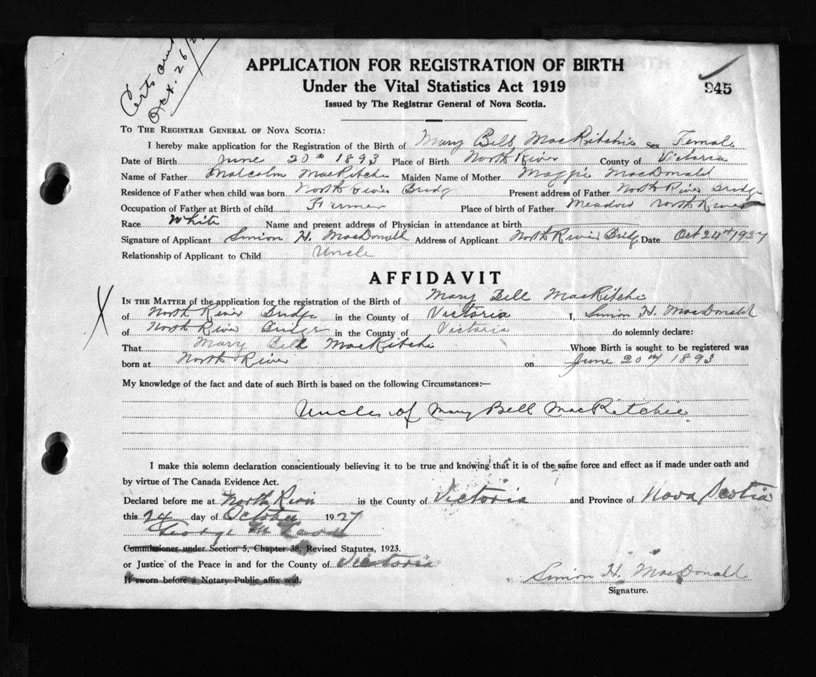 Oct. 26/2
APPLICATION FOR REGISTRATION OF BIRTH
Under the Vital Statistics Act 1919
945
Issued by The Registrar General of Nova Scotia.
TO THE REGISTRAR GENERAL OF NOVA SCOTIA:
I hereby make application for the Registration of the Birth of Mary Bell MacRitchie Sex Female
Date of Birth June 20th 1893 Place of Birth North River County of Victoria
Name of Father Malcolm MacRitchie Maiden Name of Mother Maggie MacDonald
Residence of Father when child was born North River Bridge Present address of Father North River Bridge
Occupation of Father at Birth of child Farmer Place of birth of Father Meadow North River
Race White Name and present address of Physician in attendance at birth
Signature of Applicant Simon H. MacDonald Address of Applicant North River Bridge Date Oct 24th 1927
Relationship of Applicant to Child Uncle
AFFIDAVIT
IN THE MATTER of the application for the registration of the Birth of Mary Bell MacRitchie
of North River Bridge in the County of Victoria I, Simon H. MacDonald
of North River Bridge in the County of Victoria do solemnly declare:
That Mary Bell MacRitchie Whose Birth is sought to be registered was
born at North River on June 20th 1893
My knowledge of the fact and date of such Birth is based on the following Circumstances:—
Uncle of Mary Bell MacRitchie
I make this solemn declaration conscientiously believing it to be true and knowing that it is of the same force and effect as if made under oath and
by virtue of The Canada Evidence Act.
Declared before me at North River in the County of Victoria and Province of Nova Scotia
this 24 day of October 1927
George
Commissioner under Section 5, Chapter 38, Revised Statutes, 1923.
or Justice of the Peace in and for the County of Victoria
If sworn before a Notary Public affix seal.
Simon H. MacDonald
Signature.